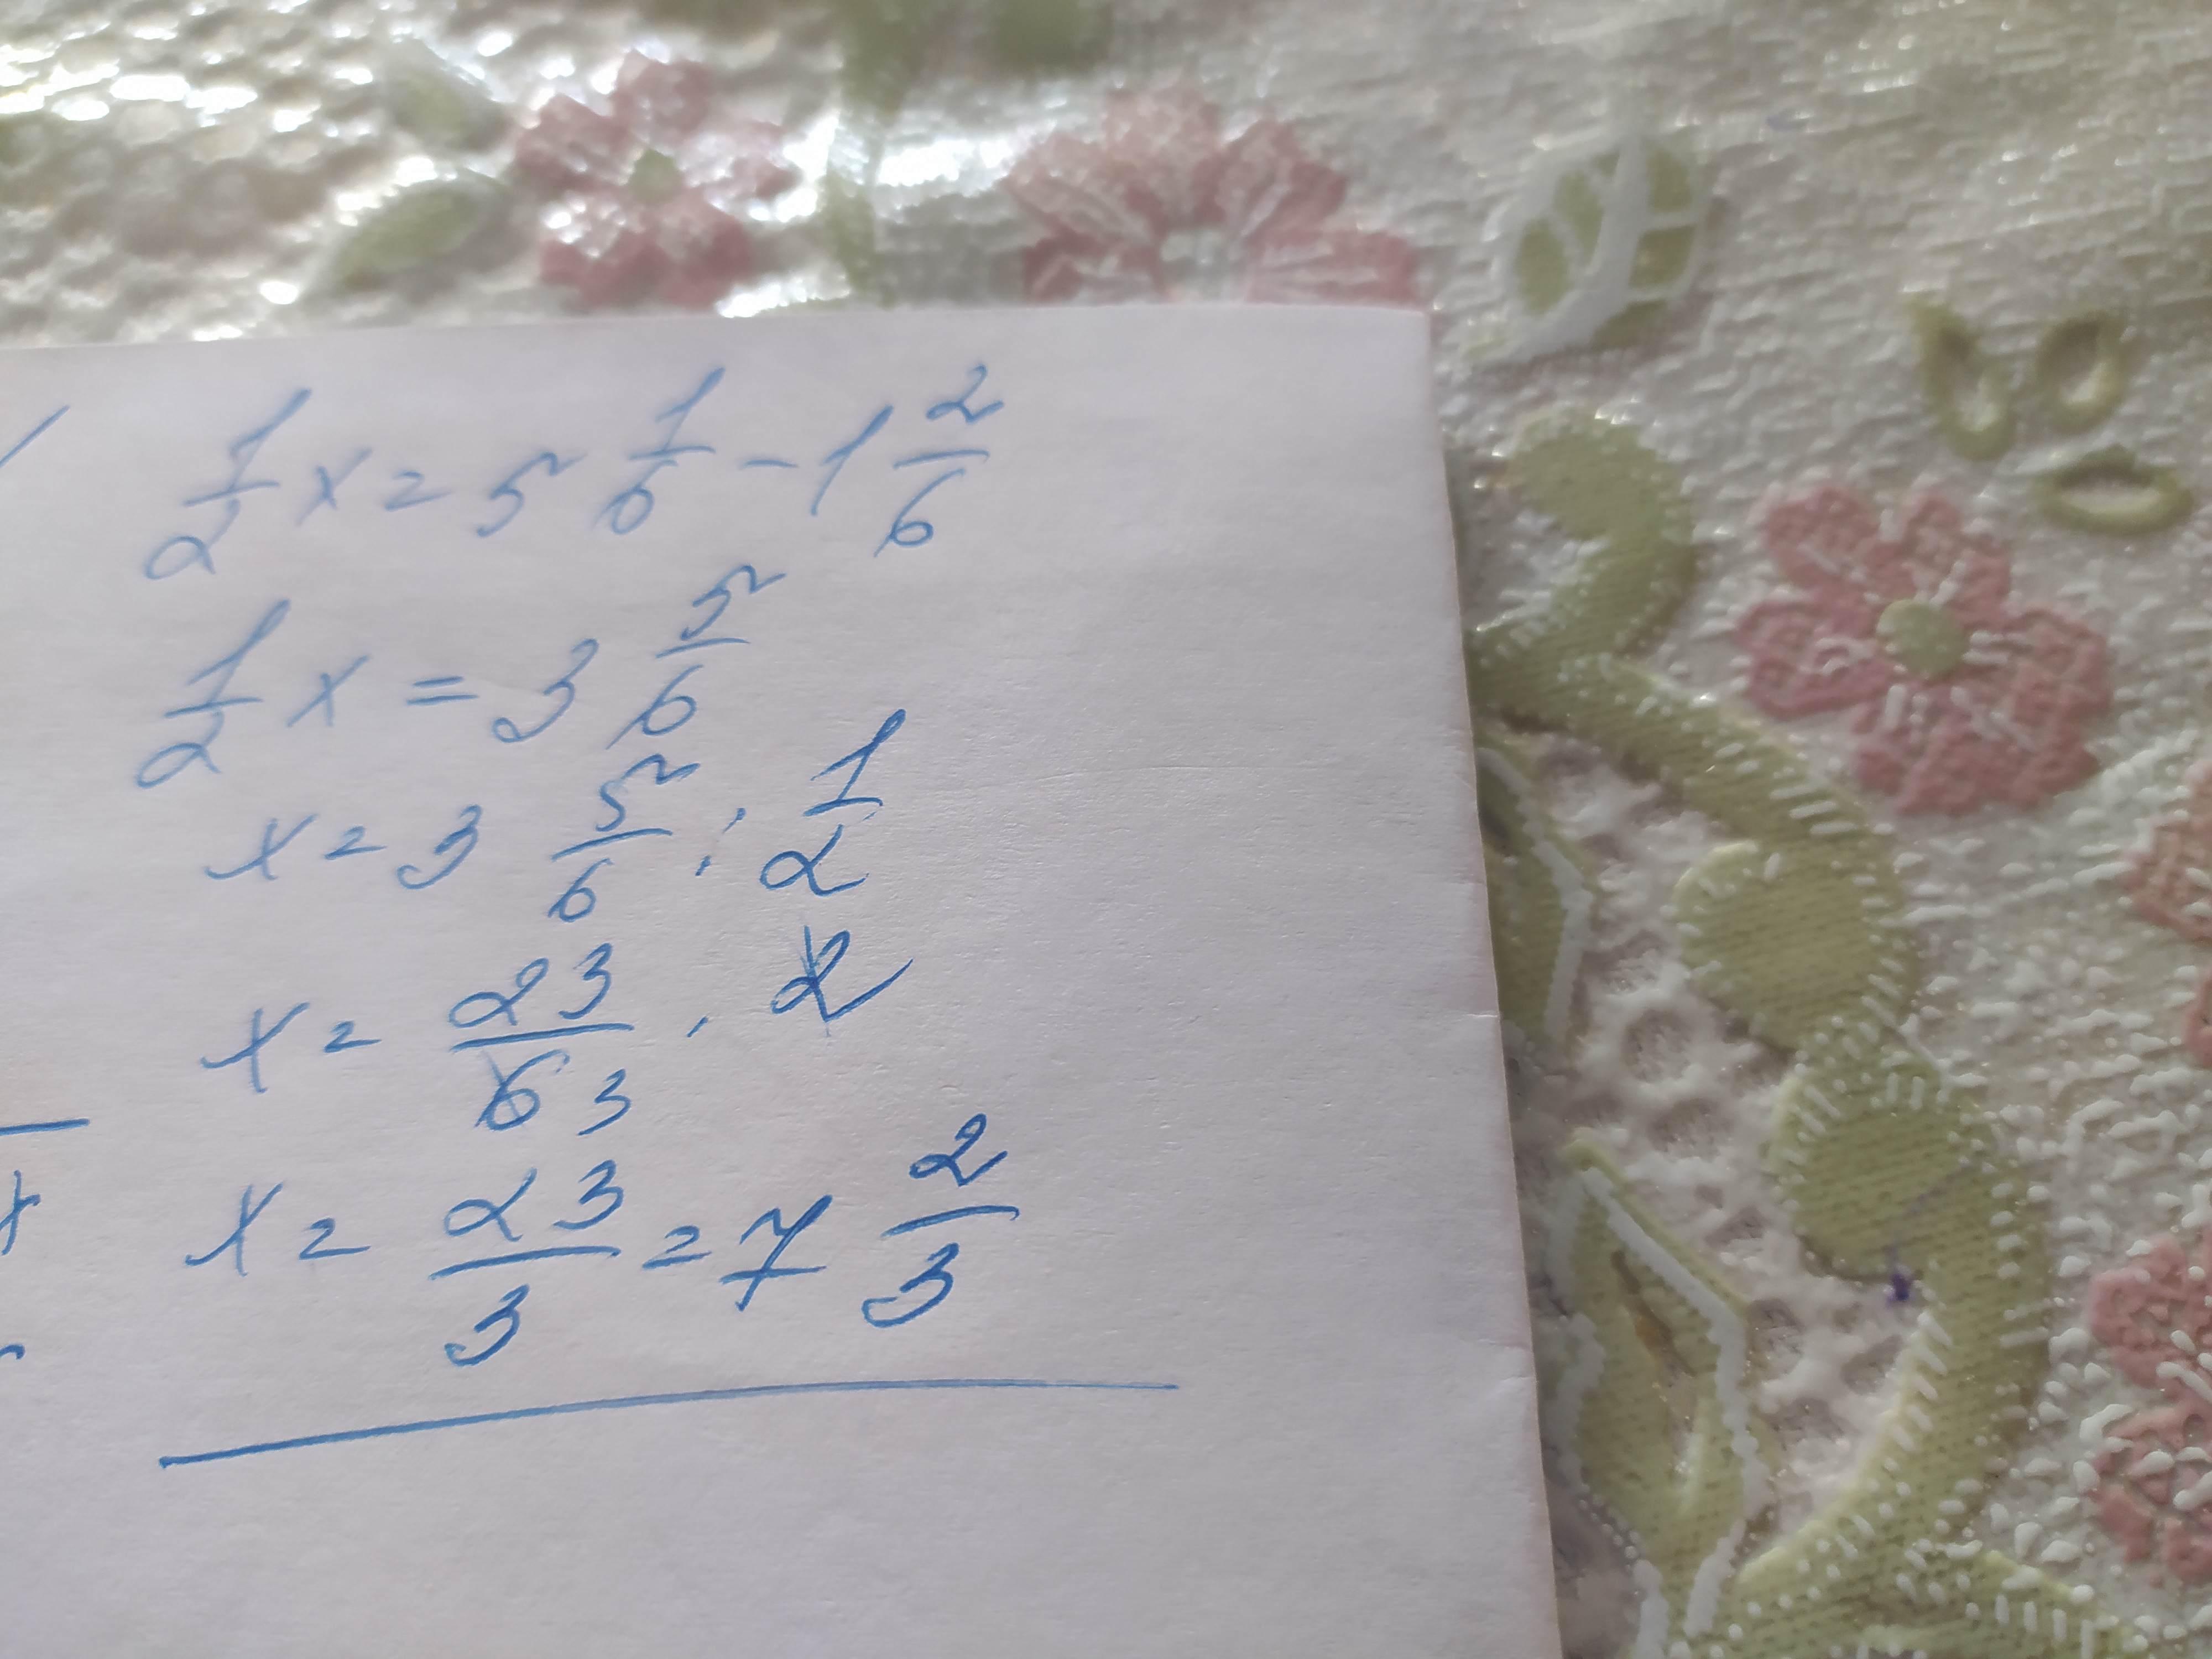 1/2 x = 5 1/6 - 1 2/6
1/2 x = 3 5/6
x = 3 5/6 : 1/2
x = 23/6 3 · 2
x = 23/3 = 7 2/3